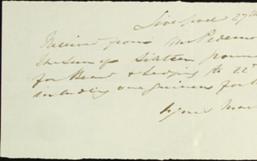 Liverpool 27th
Received from Mr
the sum of Sixteen pounds
for Board & Lodging to 22d
including one guinea for